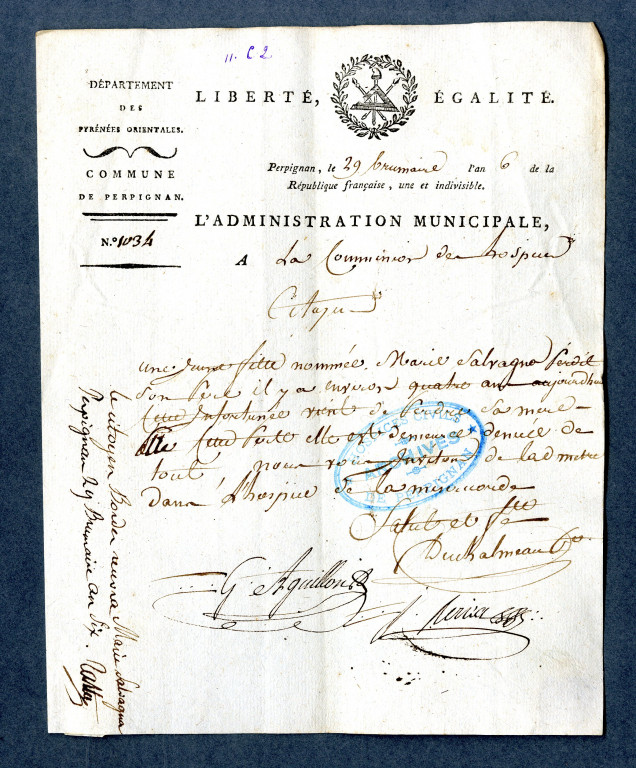 11. C 2
DÉPARTEMENT
DES
PYRÉNÉES ORIENTALES.
COMMUNE
DE PERPIGNAN.
N.º 1034
LIBERTÉ, ÉGALITÉ.
Perpignan, le 29 brumaire l'an 6 de la
République française, une et indivisible.
L'ADMINISTRATION MUNICIPALE,
A La Commission de hospices
Citoyens
une jeune fille nommée Marie Salvagna Perdit
Son Père il y a environ quatre ans aujourdhui
Cette infortunée vient de Perdre Sa mere
Cette Perte elle est demeurée denuée de
tout, nous vous Invitons de Ladmettre
dans L'hospice de La misericorde
Salut et f.té
Duchalmeau
G Aguillon
HOSPICES CIVILS
ARCHIVES
DE PERPIGNAN
Le citoyen Bordes recevra Marie Salvagna
Perpignan 29 Brumaire an Six.